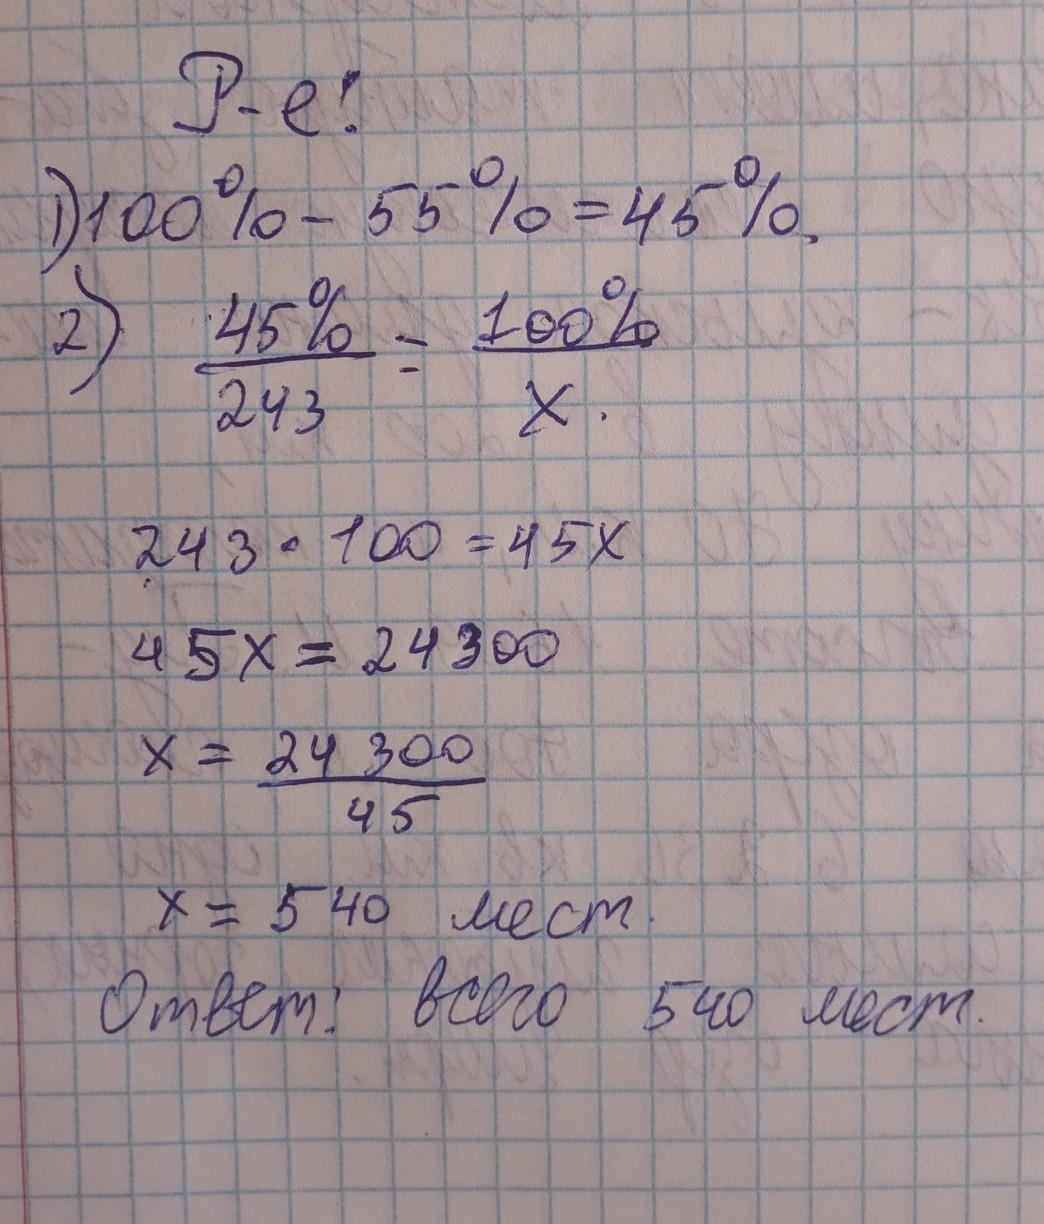 Р-е:
1) 100% - 55% = 45%.
2) 45%/243 = 100%/x.
243 · 100 = 45x
45x = 24300
x = 24 300/45
x = 540 мест.
Ответ: всего 540 мест.